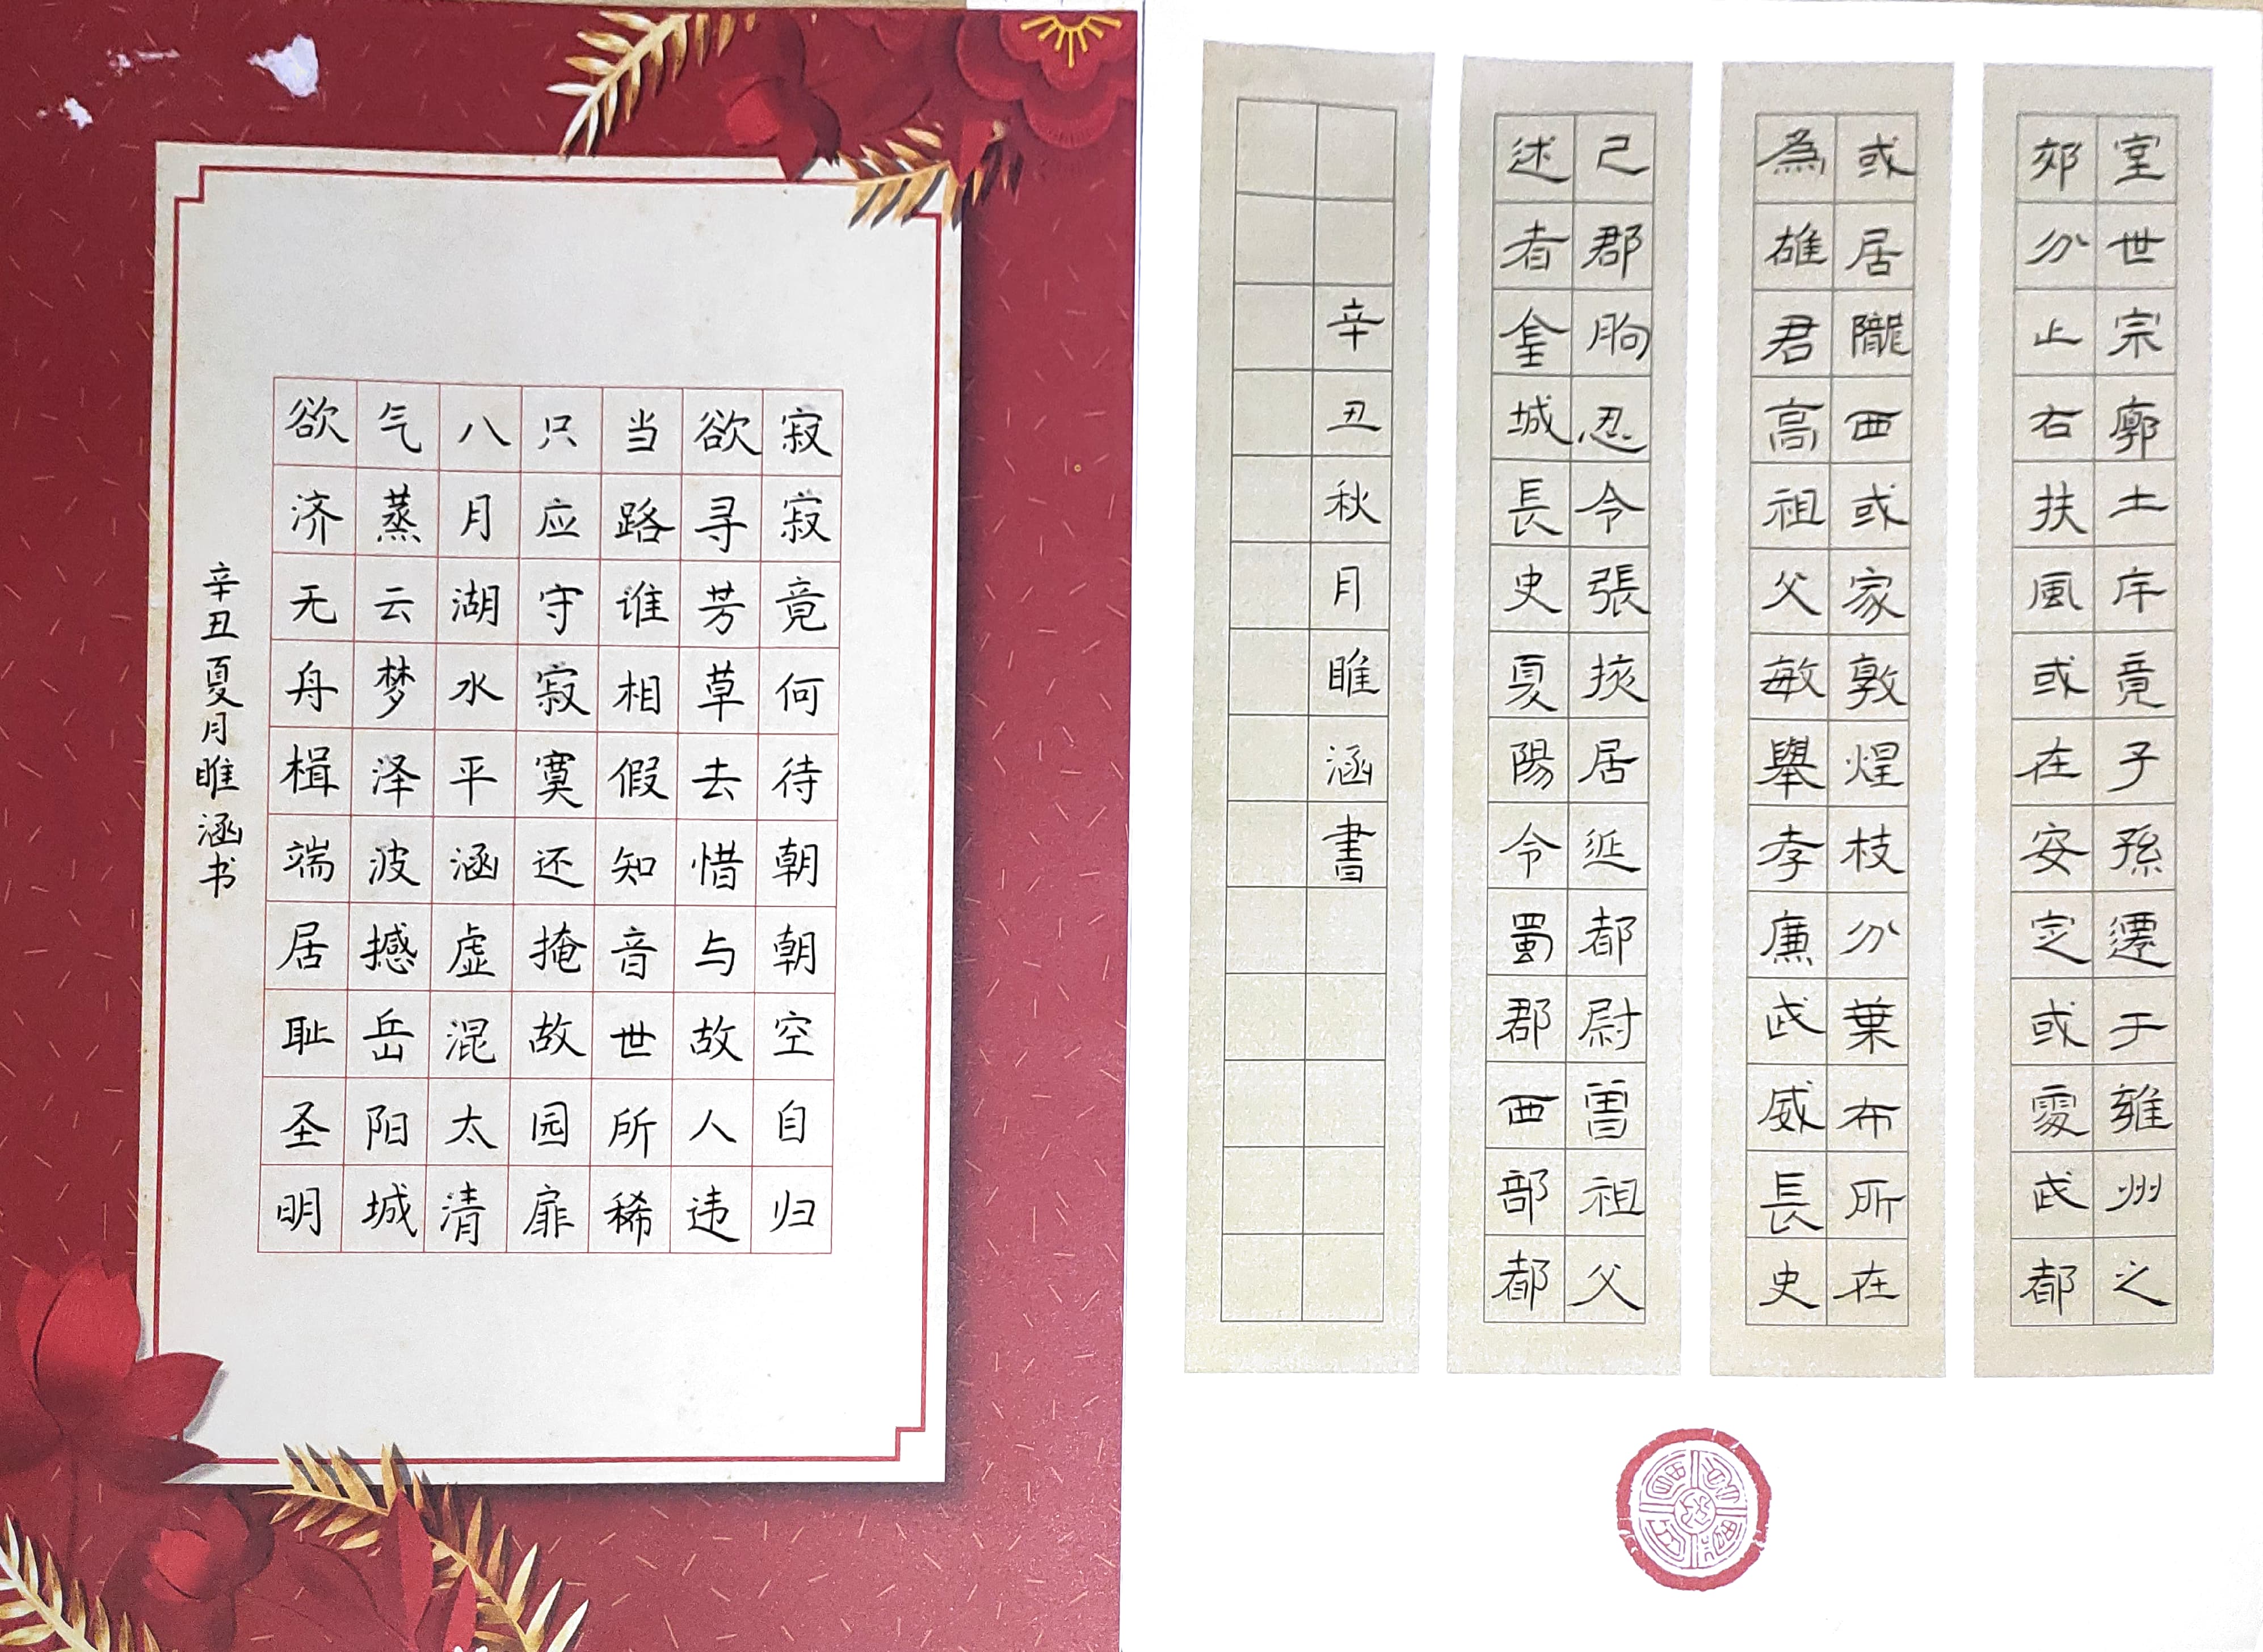 寂寂竟何待朝朝空自归
欲寻芳草去惜与故人违
当路谁相假知音世所稀
只应守寂寞还掩故园扉
八月湖水平涵虚混太清
气蒸云梦泽波撼岳阳城
欲济无舟楫端居耻圣明
辛丑夏月睢涵书
室世宗廓土斥竟子孫遷于雍州之
郊分止右扶風或在安定或處武都
或居隴西或家敦煌枝分葉布所在
為雄君高祖父敏舉孝廉武威長史
己郡朐忍令張掖居延都尉曾祖父
述者金城長史夏陽令蜀郡西部都
辛丑秋月睢涵書